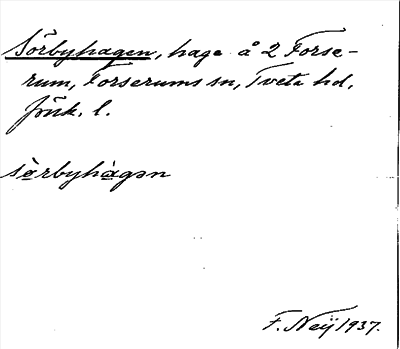 Sörbyhagen, hage å 2 Forse-
rum, Forserums sn, Tveta hd,
Jönk. l.
sòrbyhàgən
F. Neij 1937.